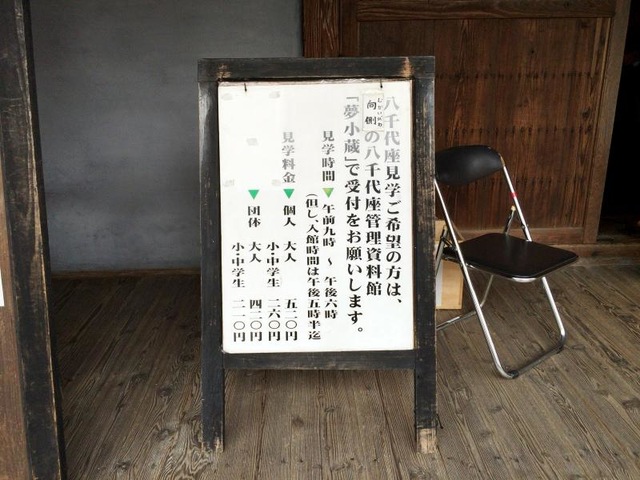 八千代座見学ご希望の方は、
向側の八千代座管理資料館
「夢小蔵」で受付をお願いします。
見学時間 ▼ 午前九時 ～ 午後六時
(但し、入館時間は午後五時半迄
見学料金 ▼ 個人 大人 五二〇円
小・中学生 二六〇円
▼ 団体 大人 四二〇円
小・中学生 二一〇円